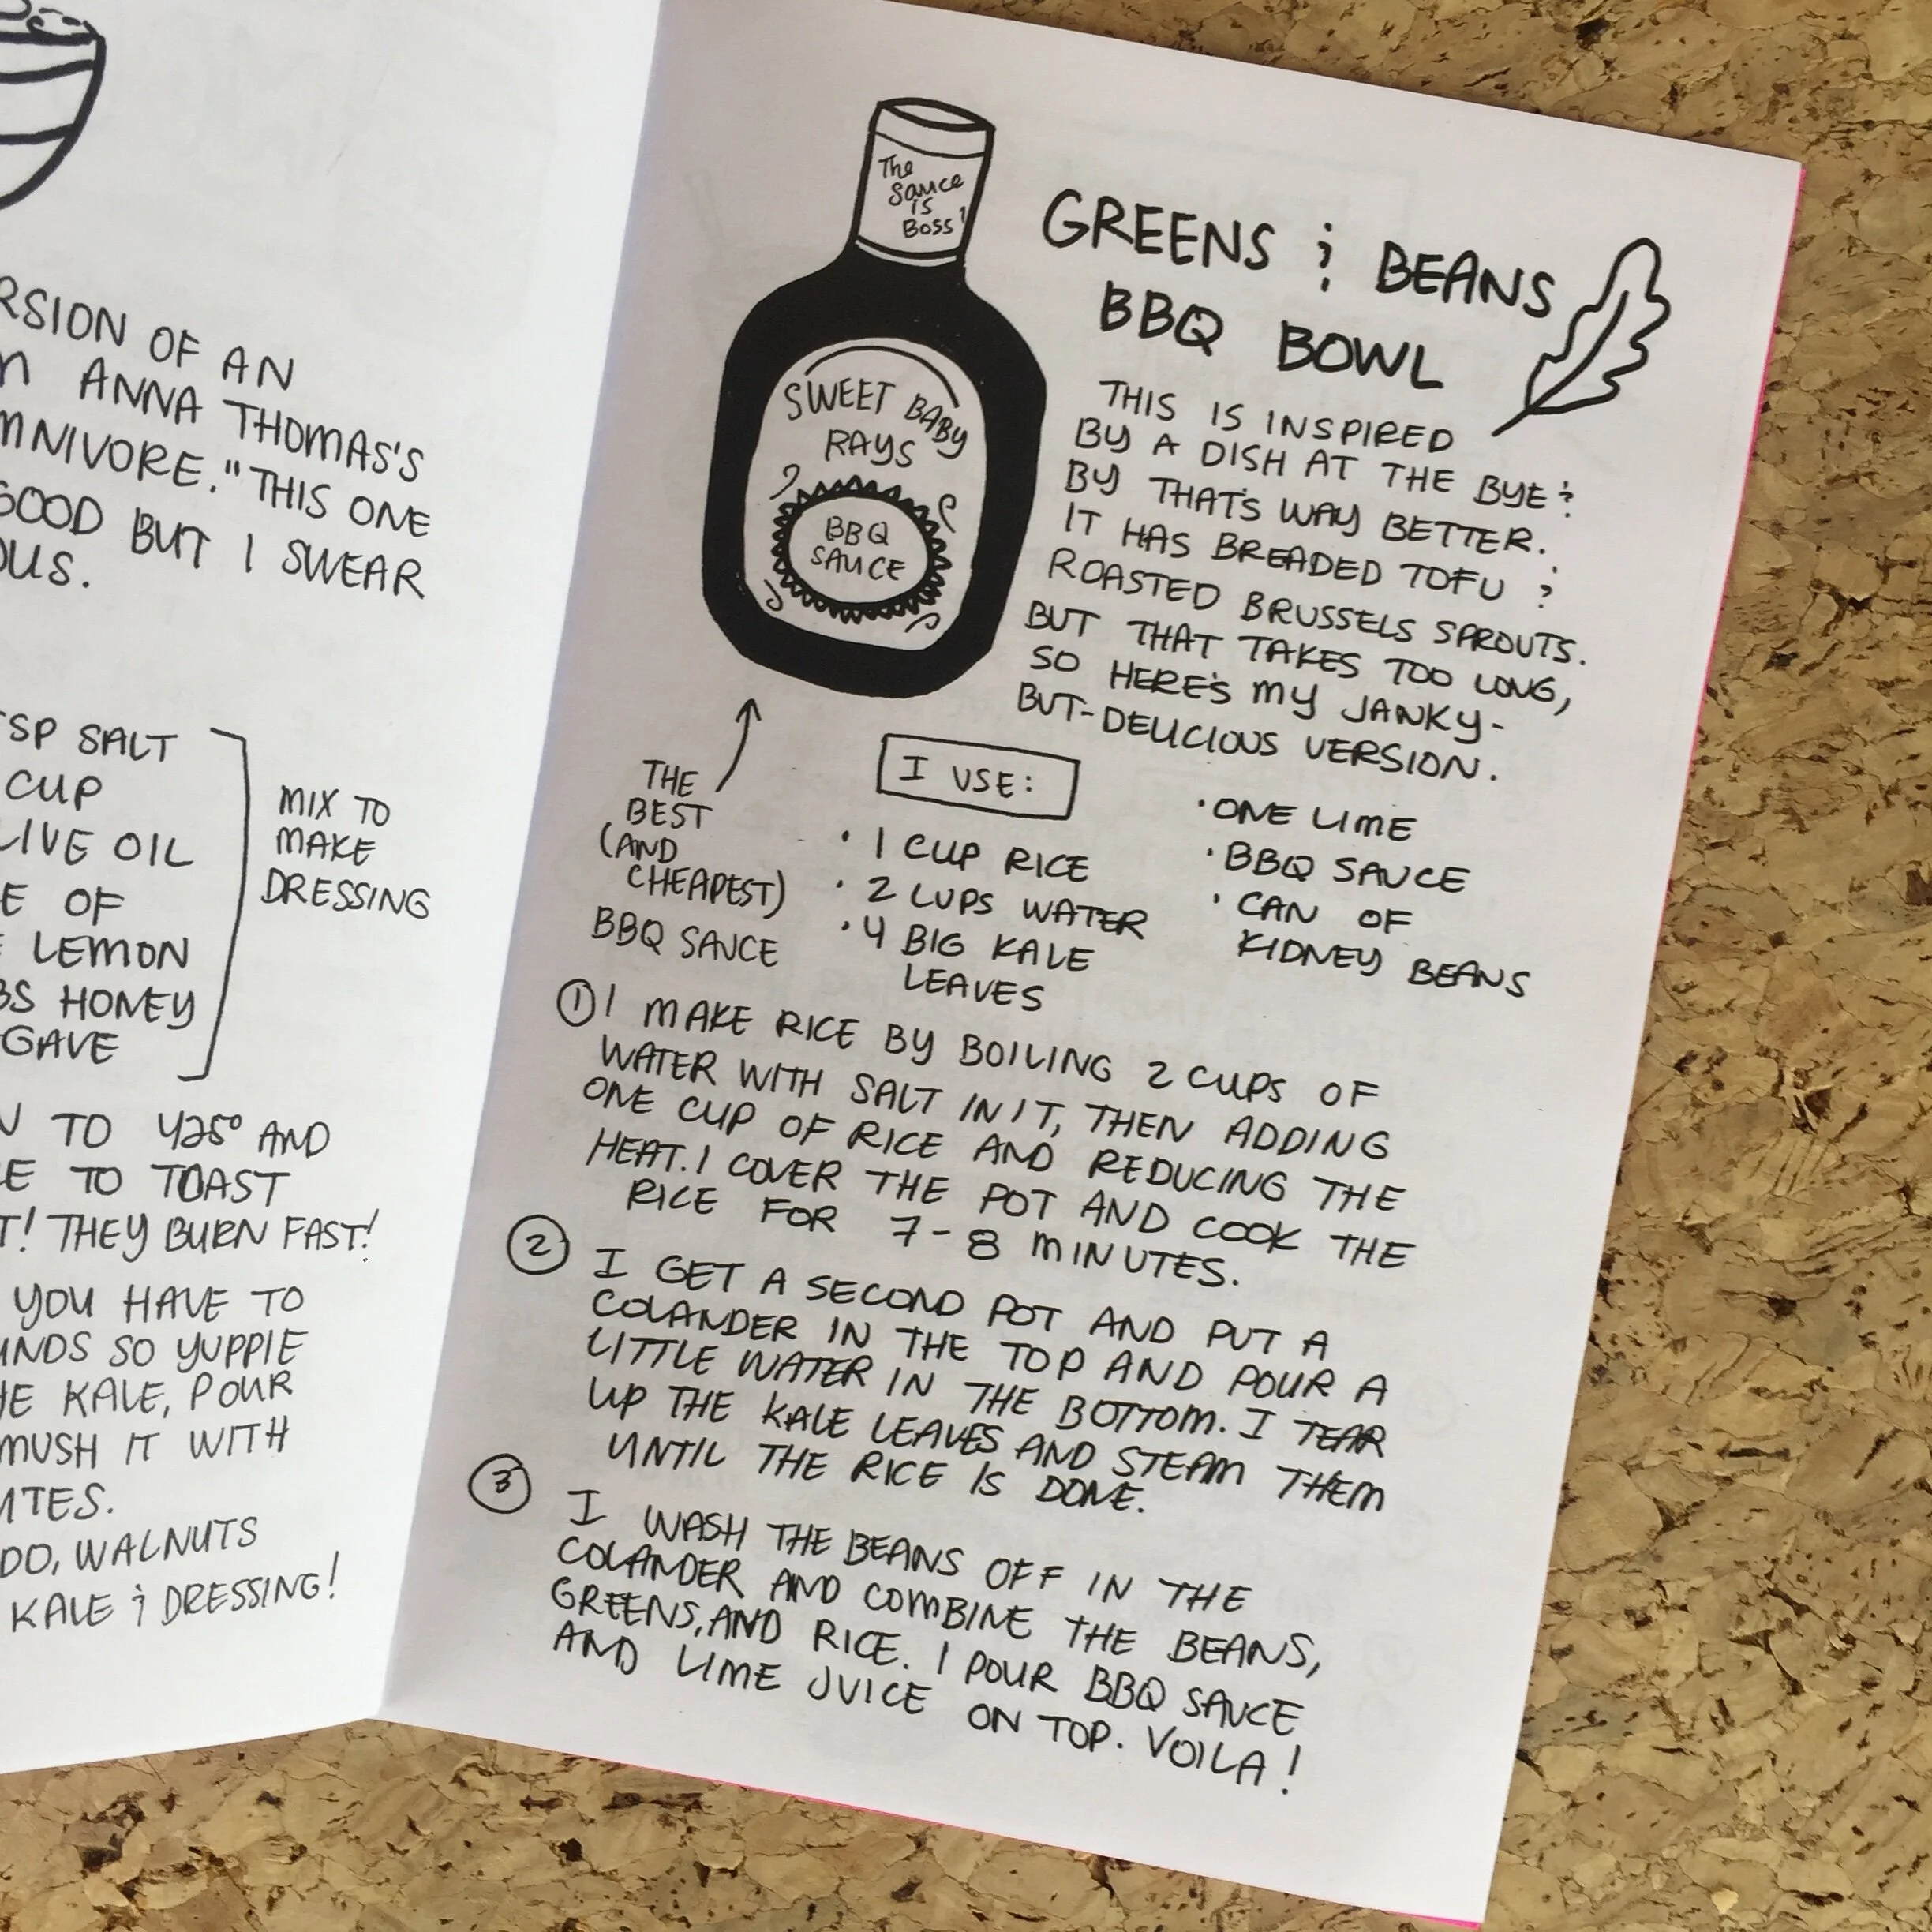 RSION OF AN
ANNA THOMAS'S
MNIVORE." THIS ONE
GOOD BUT I SWEAR
OUS.
TSP SALT
CUP
LIVE OIL
E OF
LEMON
BS HONEY
GAVE
MIX TO
MAKE
DRESSING
N TO 425° AND
E TO TOAST
T! THEY BURN FAST!
YOU HAVE TO
UNDS SO YUPPIE
HE KALE, POUR
MUSH IT WITH
UTES.
DO, WALNUTS
KALE & DRESSING!
The
Sauce
is
Boss!
SWEET BABY
RAYS
BBQ
SAUCE
GREENS & BEANS
BBQ BOWL
THIS IS INSPIRED
BY A DISH AT THE BYE &
BY THAT'S WAY BETTER.
IT HAS BREADED TOFU &
ROASTED BRUSSELS SPROUTS.
BUT THAT TAKES TOO LONG,
SO HERE'S MY JANKY-
BUT-DELICIOUS VERSION.
THE
BEST
(AND
CHEAPEST)
BBQ SAUCE
I USE:
• 1 CUP RICE
• 2 CUPS WATER
• 4 BIG KALE
LEAVES
• ONE LIME
• BBQ SAUCE
• CAN OF
KIDNEY BEANS
① I MAKE RICE BY BOILING 2 CUPS OF
WATER WITH SALT IN IT, THEN ADDING
ONE CUP OF RICE AND REDUCING THE
HEAT. I COVER THE POT AND COOK THE
RICE FOR 7-8 MINUTES.
② I GET A SECOND POT AND PUT A
COLANDER IN THE TOP AND POUR A
LITTLE WATER IN THE BOTTOM. I TEAR
UP THE KALE LEAVES AND STEAM THEM
UNTIL THE RICE IS DONE.
③ I WASH THE BEANS OFF IN THE
COLANDER AND COMBINE THE BEANS,
GREENS, AND RICE. I POUR BBQ SAUCE
AND LIME JUICE ON TOP. VOILA!